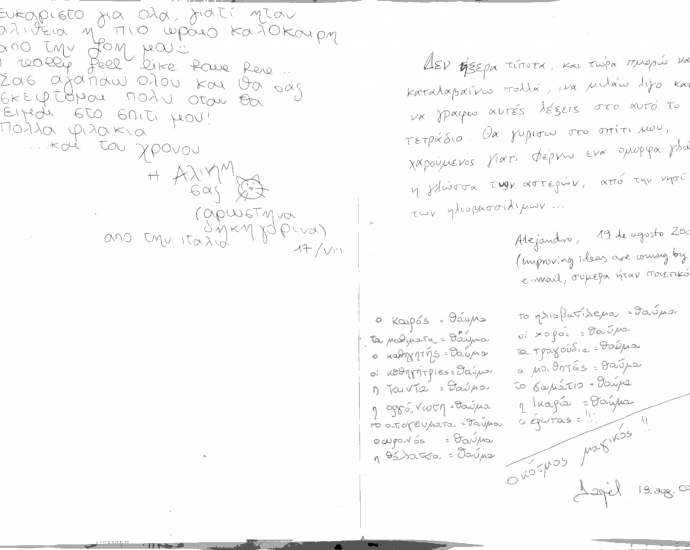 Ευκαριστο για ολα, γιατί ήταν
αλιθεια η πιο ωραιο καλοκαιρη
απο την ζοη μου
I really feel like home here..
Σας αγαπαω ολου και θα σας
σκεφτομαι πολυ οταν θα
Ειμαι στο σπιτι μου!
Πολλα φιλακια
...και του χρονου
η Αλικη
σας
(αρωστηνα
απο την ιταλια
17/VIII
Δεν ήξερα τίποτα, και τώρα μπορώ να
καταλαβαίνω πολλά, να μιλάω λίγο και
να γράφω αυτές λέξεις στο αυτό το
τετράδιο. Θα γυρισω στο σπίτι μου,
χαρούμενος γιατι φέρνω ενα ομορφα
η γλώσσα των αστερών, από την νησί
των ηλιοβασιλιμων...
Alejandro, 19 de agosto
(Improving ideas are coming by
e-mail, συμερα ήταν
ο καιρός = θαύμα
τα μαθματα = θαύμα
ο καθηγητής = θαύμα
οι καθηγήτριες = θαύμα
η Ταινία = θαύμα
η οργάνωση = θαύμα
το απογευματα = θαύμα
ο ουρανός = θαύμα
η θάλασσα = θαύμα
το ηλιοβατίλεμα = θαύμα
οι χοροί = θαύμα
τα τραγούδια = θαύμα
α μαθητές = θαύμα
το δωμάτιο = θαύμα
η Ικαρία = θαύμα
ο έρωτας = !!!
Ο κόσμος μαγικός !!